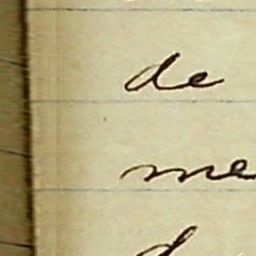 de
me
d